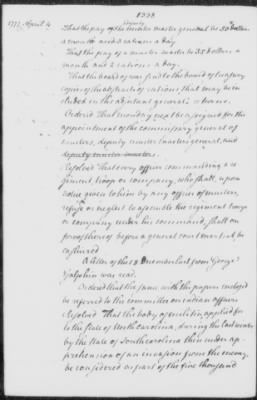 1338
1777 April 4
That the pay of the deputy muster master general be 50 dollars
a month and 3 rations a day.
That the pay of a muster master be 35 dollars a
month and 2 rations a day.
That the board of war send to the board of treasury
copies of the abstracts of rations that may be in
cluded in the adjutant general's
Ordered That monday next be assigned for the
appointment of the commissary general of
musters, deputy muster masters general, and
deputy muster masters.
Resolved That every officer commanding a re
giment, troop or company, who shall, upon
given to him by any officer of musters,
refuse or neglect to assemble his regiment troop
or company under his command, shall on
proof thereof before a general court martial, be
cashiered
A letter of the 18 December last from George
Galphin was read.
Ordered that the same with the papers enclosed
be referred to the committee on indian affairs
Resolved That the body of militia applied for
to the State of North Carolina, during the last winter
by the State of South carolina then under ap
prehension of an invasion from the enemy,
be considered as part of the five thousand